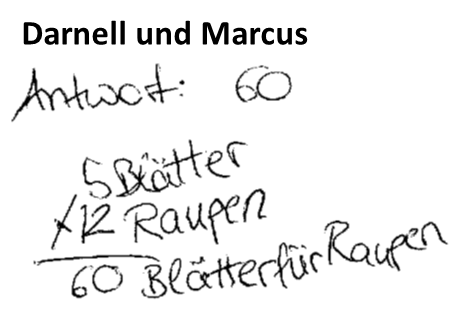 Darnell und Marcus
Antwort: 60
5 Blätter
x12 Raupen
60 Blätter für Raupen